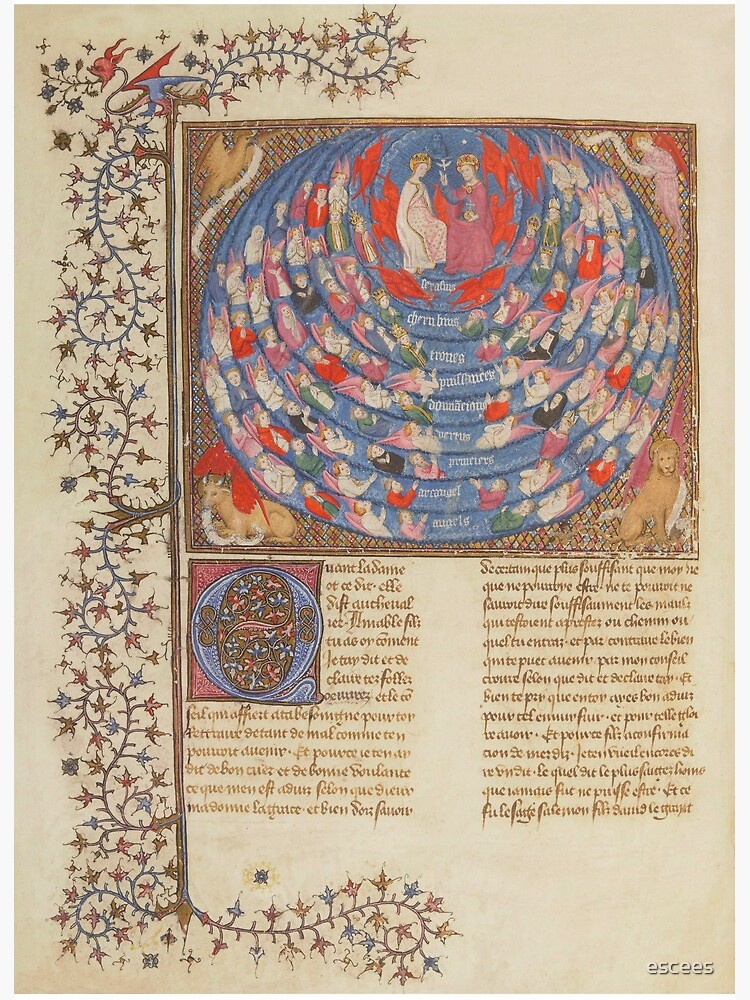 serafins
cherubins
trones
puissances
dominacions
vertus
princiers
arcangel
angels
Quant la dame
ot ce dit. elle
dist au cheval
ier. Amiable filz
tu as oy coment
Je tay dit et de
claire tes folles
oeuvres. et le co
seil qui affiert a ta besoingne pour toy
Rettraire de tant de mal comme ten
pourroit avenir. Et pource ie ten ay
dit de bon cuer et de bonne voulante
ce que men est aduiz selon que dieux
ma donne la grace. et bien doiz savoir
De certain que plus souffisant que moy ne
que ne pourroye estre. ne te pouroit ne
sauroit dire souffisaument les maulx
qui testoient aprestez ou chemin ou
quel tu entraz. et par contraire le bien
qui te puet avenir. par mon conseil
croire selon que dit et declaire tay. Et
bien te pry que en toy ayes bon aduiz
pour tel ennuy fuir. et pour telle gloi
re avoir. Et pource filz a confirma
cion de mer diz. Je ten vueil encores di
re un dit. le quel dit le plus saige homs
que iamais fut ne puisse estre. Et ce
fu le saige salemon filz david le grant
escees